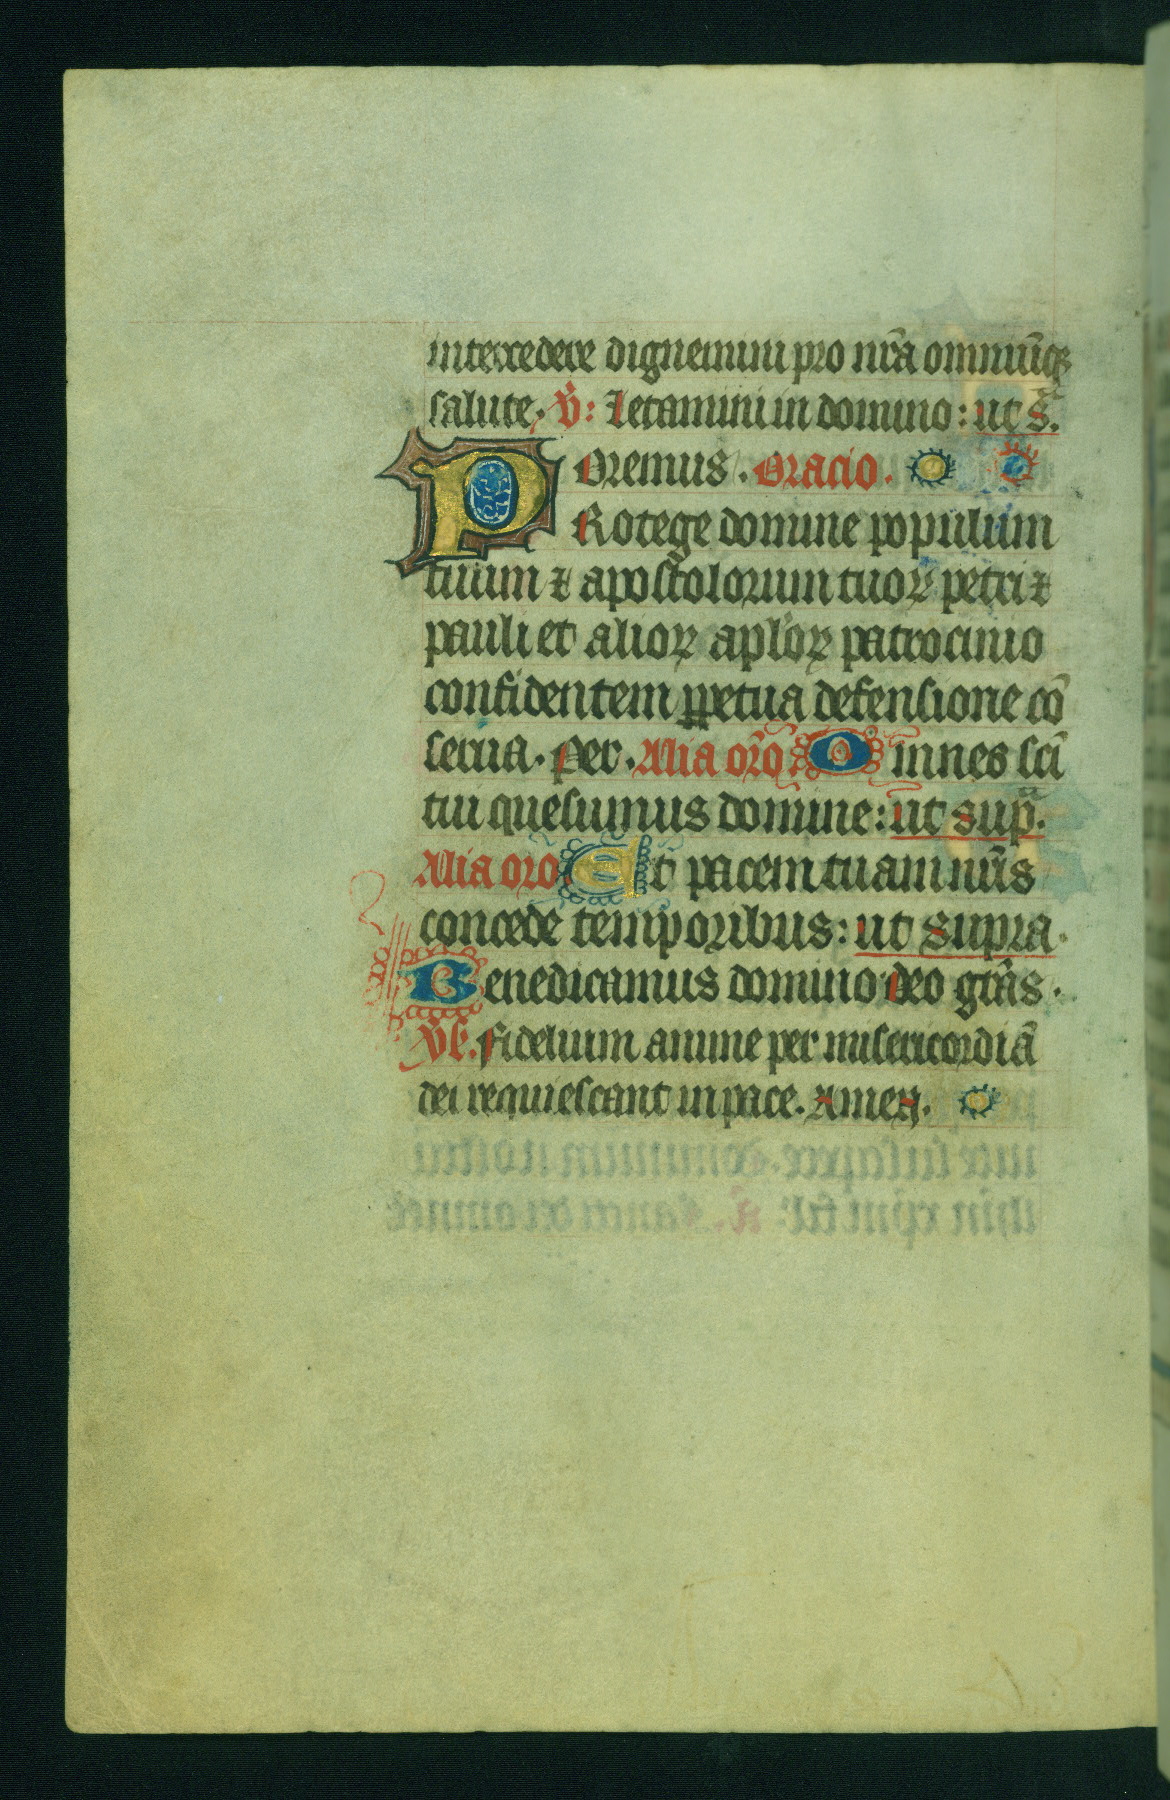 intercedere dignemini pro nr̄a omniūqꝫ
salute. V̄: Letamini in domino: ut sᵃ.
Oremus. Oracio.
PRotege domine populum
tuum ⁊ apostolorum tuoꝝ petri ⁊
pauli et alioꝝ apl'oꝝ patrocinio
confidentem ꝑpetua defensione cō
serua. Per. Alia or̄o. Omnes sc̄i
tui quesumus domine: ut supᵃ.
Alia oro Et pacem tuam nr̄is
concede temporibus: ut supra.
Benedicamus domino deo gr̄as.
Vl. Fidelium anime per misericordiā
dei requiescant in pace. Amen.